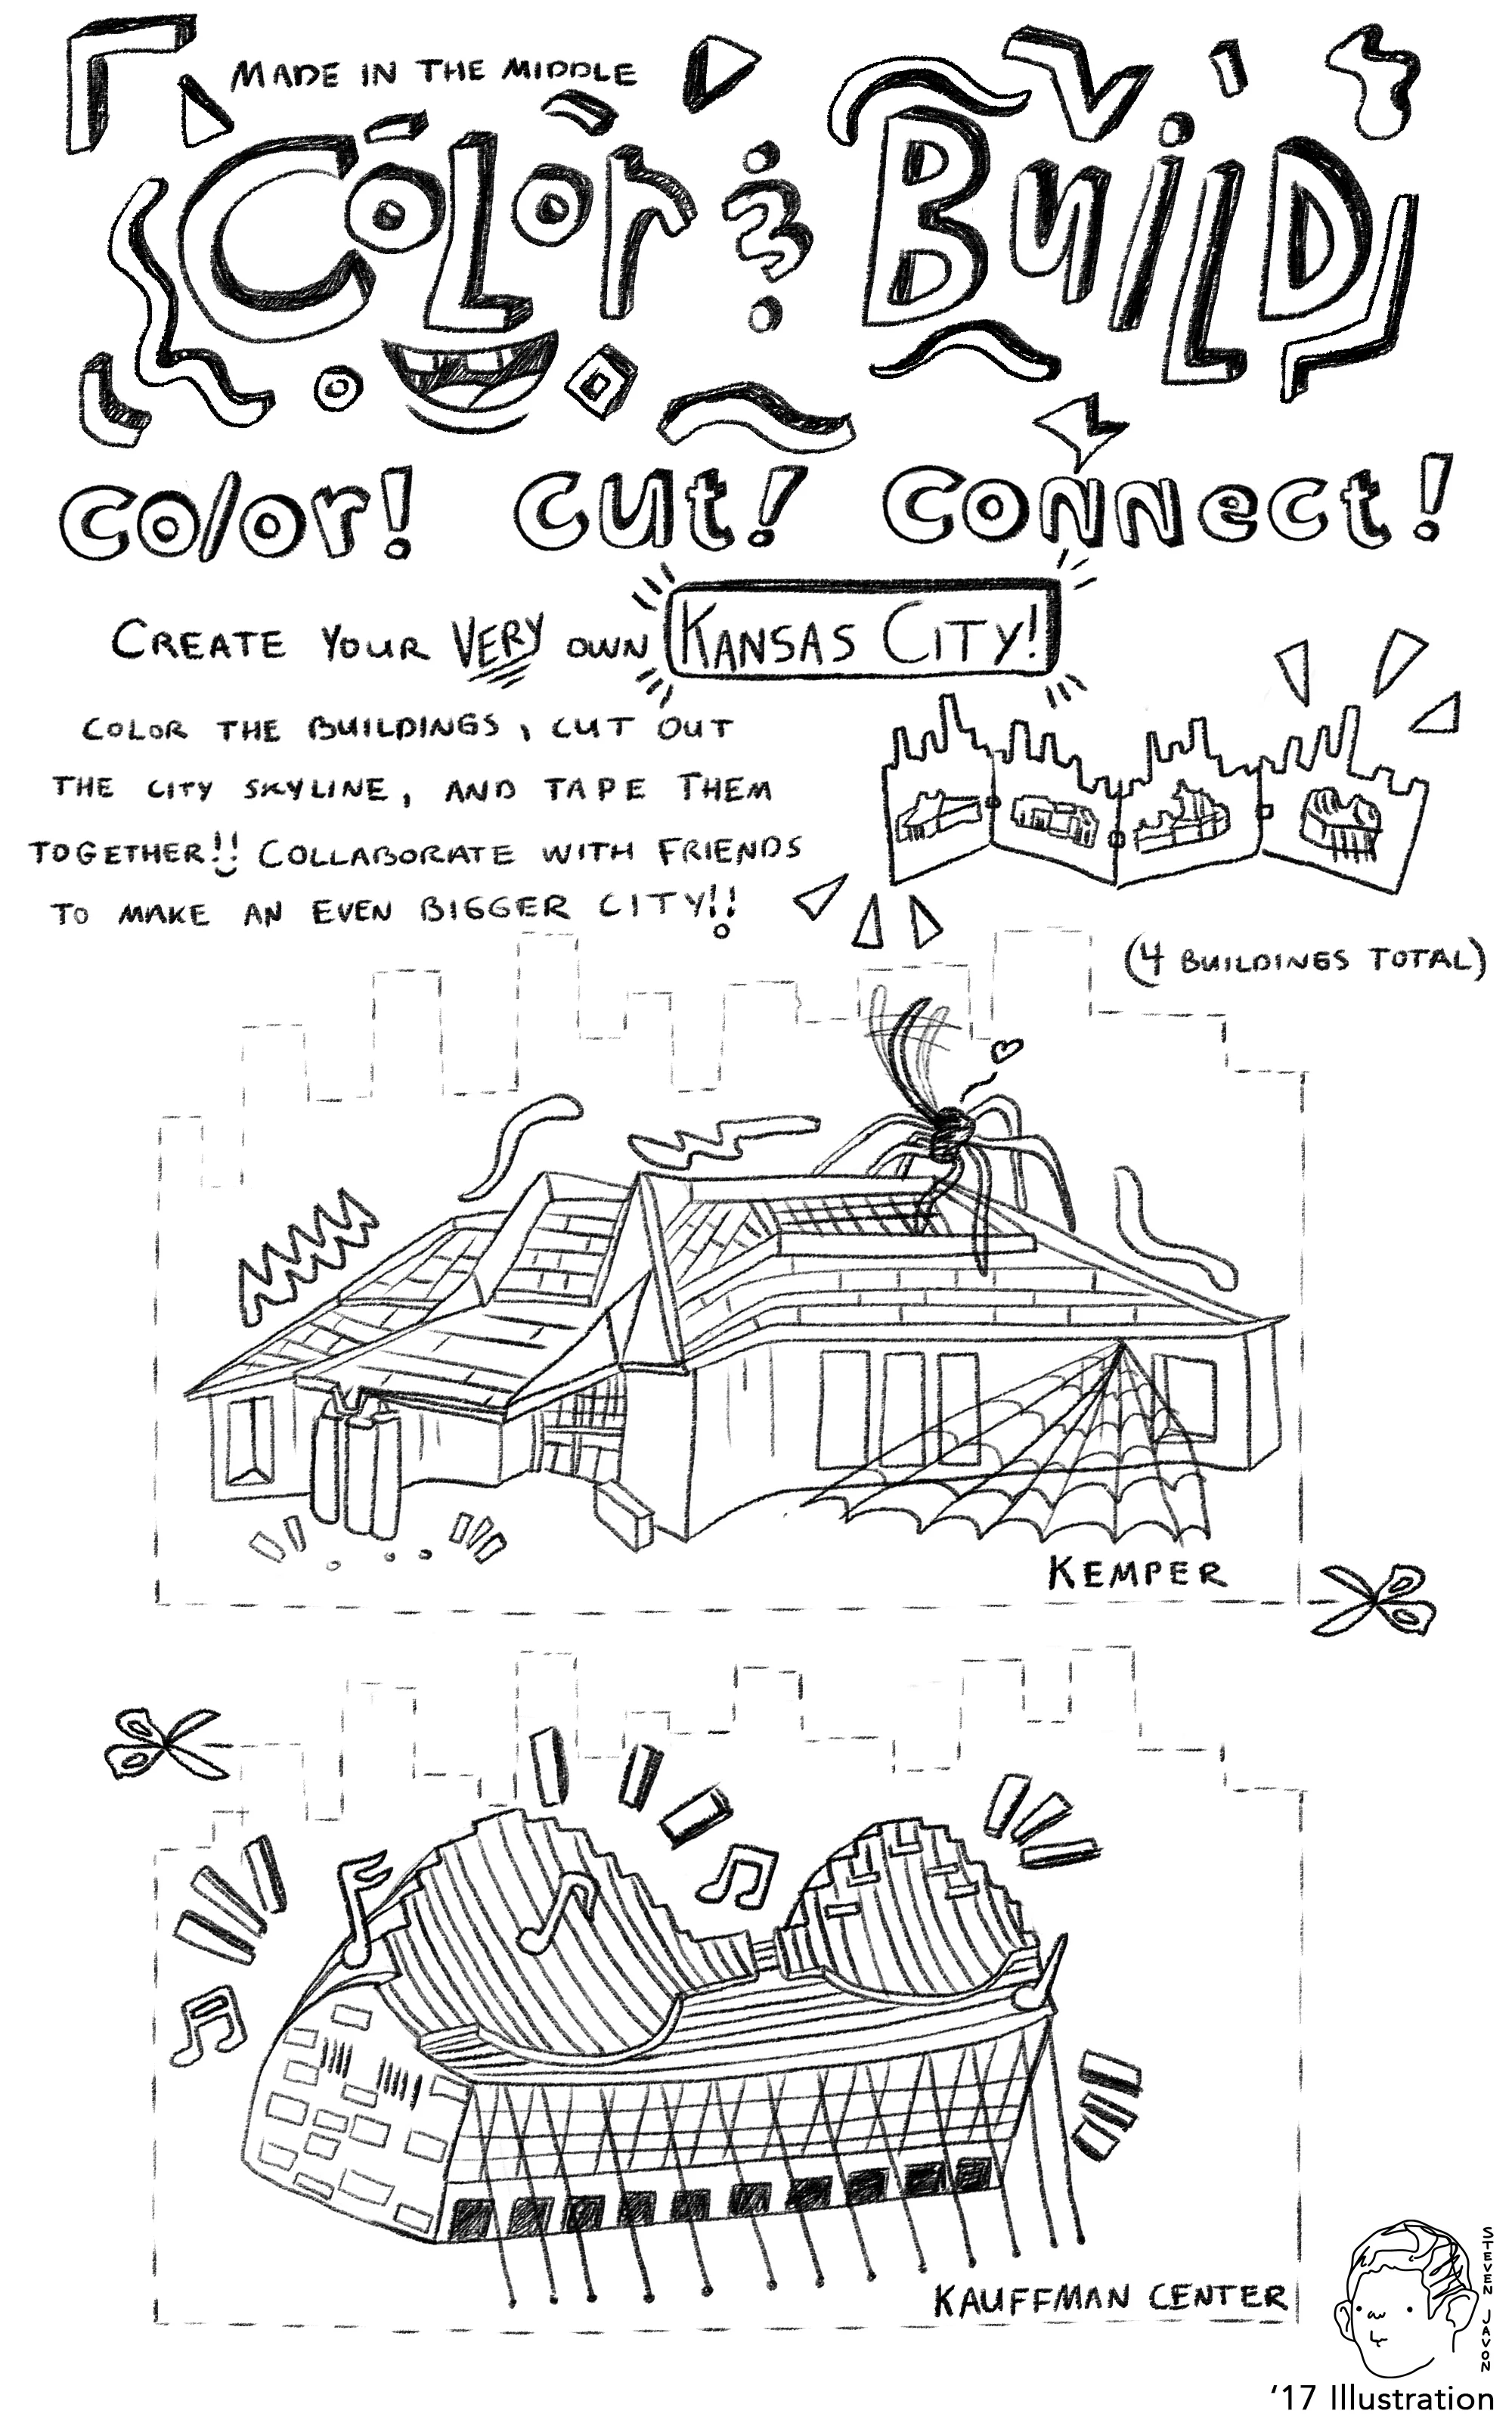 MADE IN THE MIDDLE
COLOR & BUILD
color! cut! connect!
CREATE YOUR VERY OWN KANSAS CITY!
COLOR THE BUILDINGS, CUT OUT
THE CITY SKYLINE, AND TAPE THEM
TOGETHER!! COLLABORATE WITH FRIENDS
TO MAKE AN EVEN BIGGER CITY!!
(4 BUILDINGS TOTAL)
KEMPER
KAUFFMAN CENTER
STEVEN JAVON
‘17 Illustration